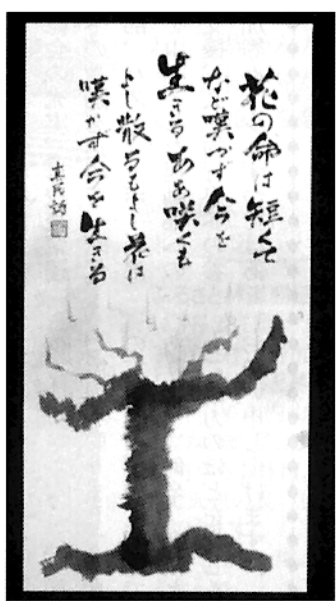 花の命は短くて
など嘆かず今を
生きるああ咲くも
よし散るもよし花は
嘆かず今を生きる